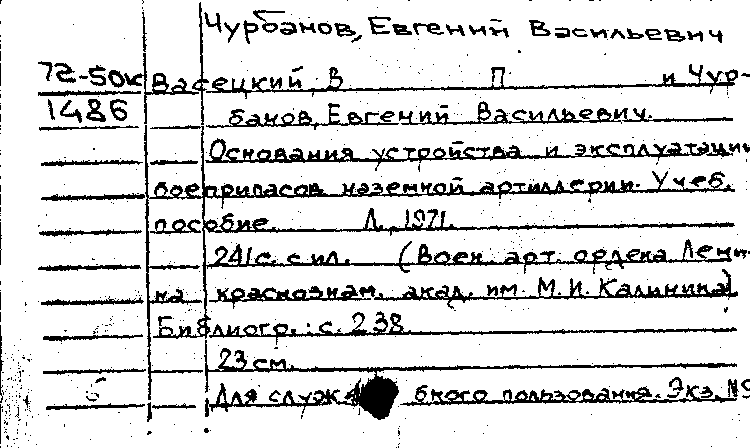 Чурбанов, Евгений Васильевич
72-50к Васецкий, В П и Чур-
1486 банов, Евгений Васильевич.
Основания устройства и эксплуатации
боеприпасов наземной артиллерии. Учеб.
пособие. Л., 1971.
241 с. с ил. (Воен. арт. ордена Лени-
на краснознам. акад. им. М.И. Калинина)
Библиогр.: с. 238.
23 см.
б Для служебного пользования. Экз. №